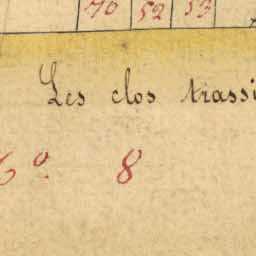 70 52 53
Les clos trassi
6º 8